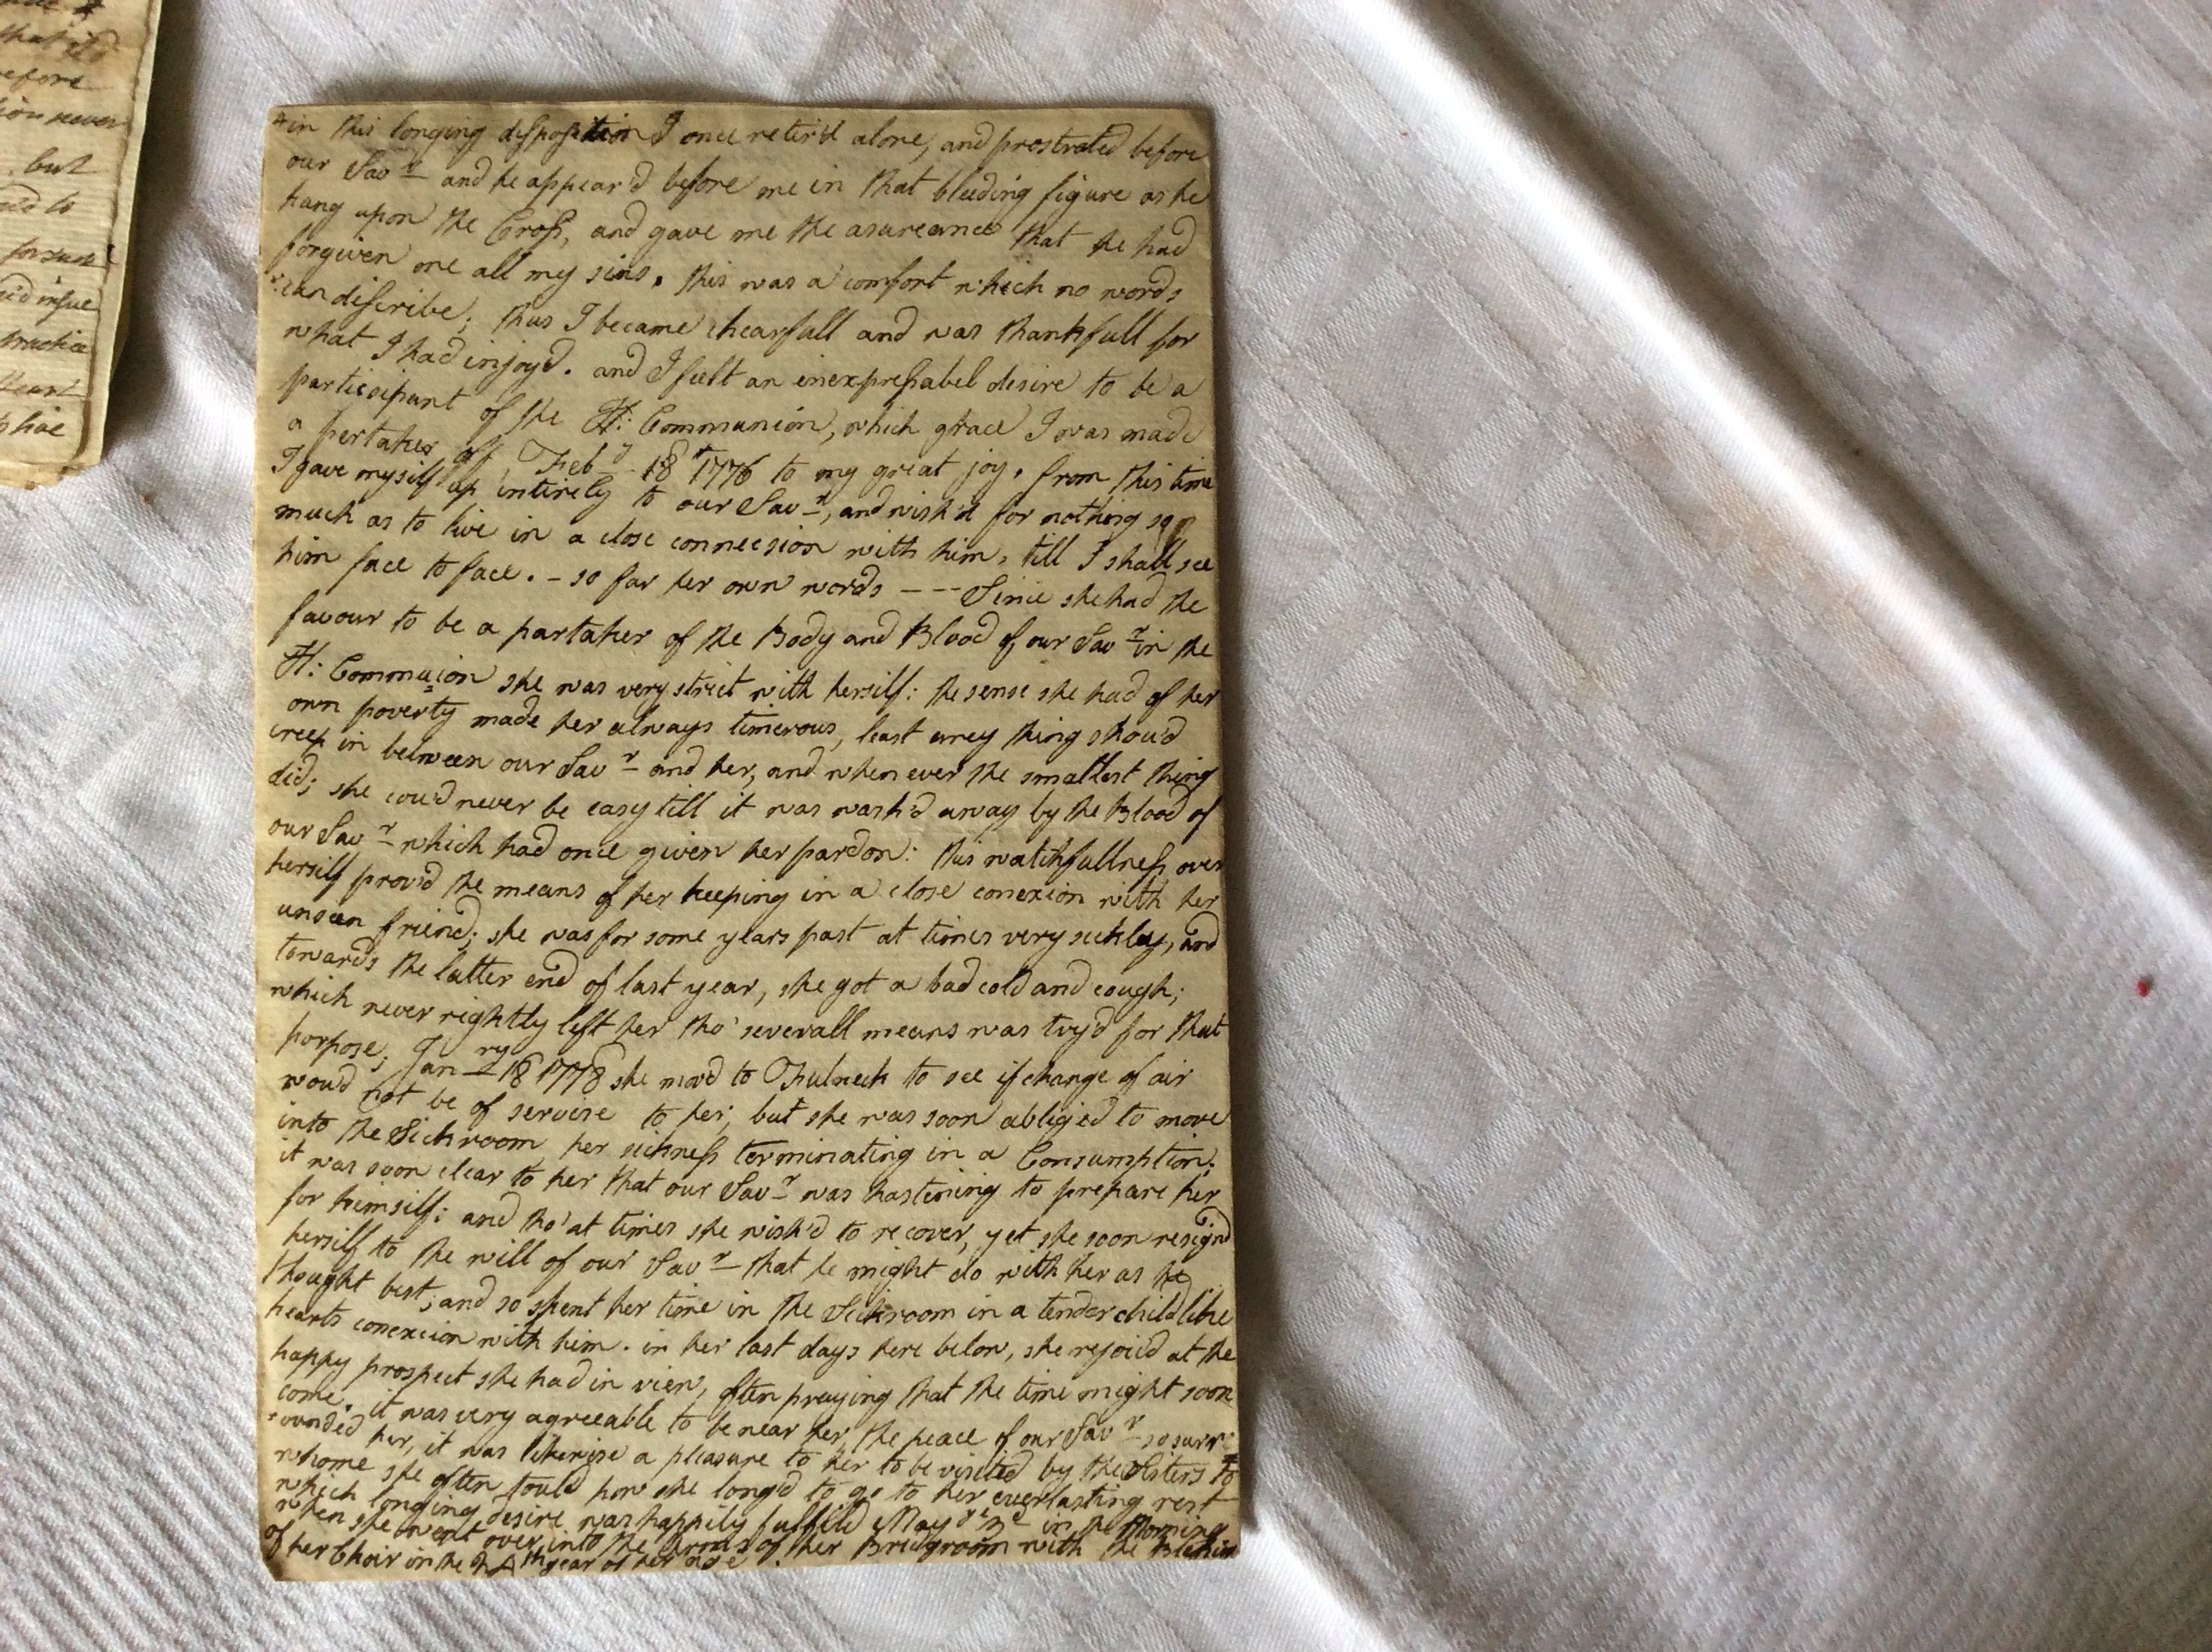 hat it'd
efore
ion never
but
forsure
practice
Heart
in this longing disposition I once retir'd alone, and prostrated before
our Savr and he appear'd before me in that bleeding figure as he
hang upon the Cross, and gave me the asureance that he had
forgiven me all my sins. this was a comfort which no words
can discribe; thus I became chearfull and was thankfull for
what I had injoy'd. and I felt an inexpressabel desire to be a
partissipant of the H: Communion, which grace I was made
a pertaker off, Feby 18 1776 to my great joy. from this time
I gave myself up intirely to our Savr, and wish'd for nothing so
much as to live in a close connecsion with him, till I shall see
him face to face. - so far her own words --- Since she had the
favour to be a partaker of the Body and Blood of our Savr in the
H: Commuion she was very strict with herself: the sense she had of her
own poverty made her always timerous, least aney thing shou'd
creep in between our Savr and her, and when ever the smallest thing
did; she cou'd never be easy till it was wash'd away by the Blood of
our Savr which had once given her pardon: this watchfullness over
herself prov'd the means of her keeping in a close conexion with her
unseen friend; she was for some years past at times very sickley, and
towards the latter end of last year, she got a bad cold and cough;
which never rightly left her tho' severall means was try'd for that
porpose; Janry 18 1778 she mov'd to Fulneck to see if change of air
wou'd not be of servise to her; but she was soon abliged to move
into the Sickroom, her sickness terminating in a Consumption;
it was soon clear to her that our Savr was hastening to prepare her
for himself: and tho' at times she wish'd to recover, yet she soon resign'd
herself to the will of our Savr that he might do with her as he
thought best; and so spent her time in the Sickroom in a tender childlike
hearts conexcion with him. in her last days here below, she rejoic'd at the
happy prospect she had in view, often praying that the time might soon
come. it was very agreeable to be near her, the peace of our Savr so surr
ounded her, it was likewise a pleasure to her to be visited by the Sisters to
whome she often tould how she long'd to go to her everlasting rest
which longing desire was happily fulfill'd May in the Morning
when she went over into the Arms of her Bridgroom with the
of her Choir in the year of her age.